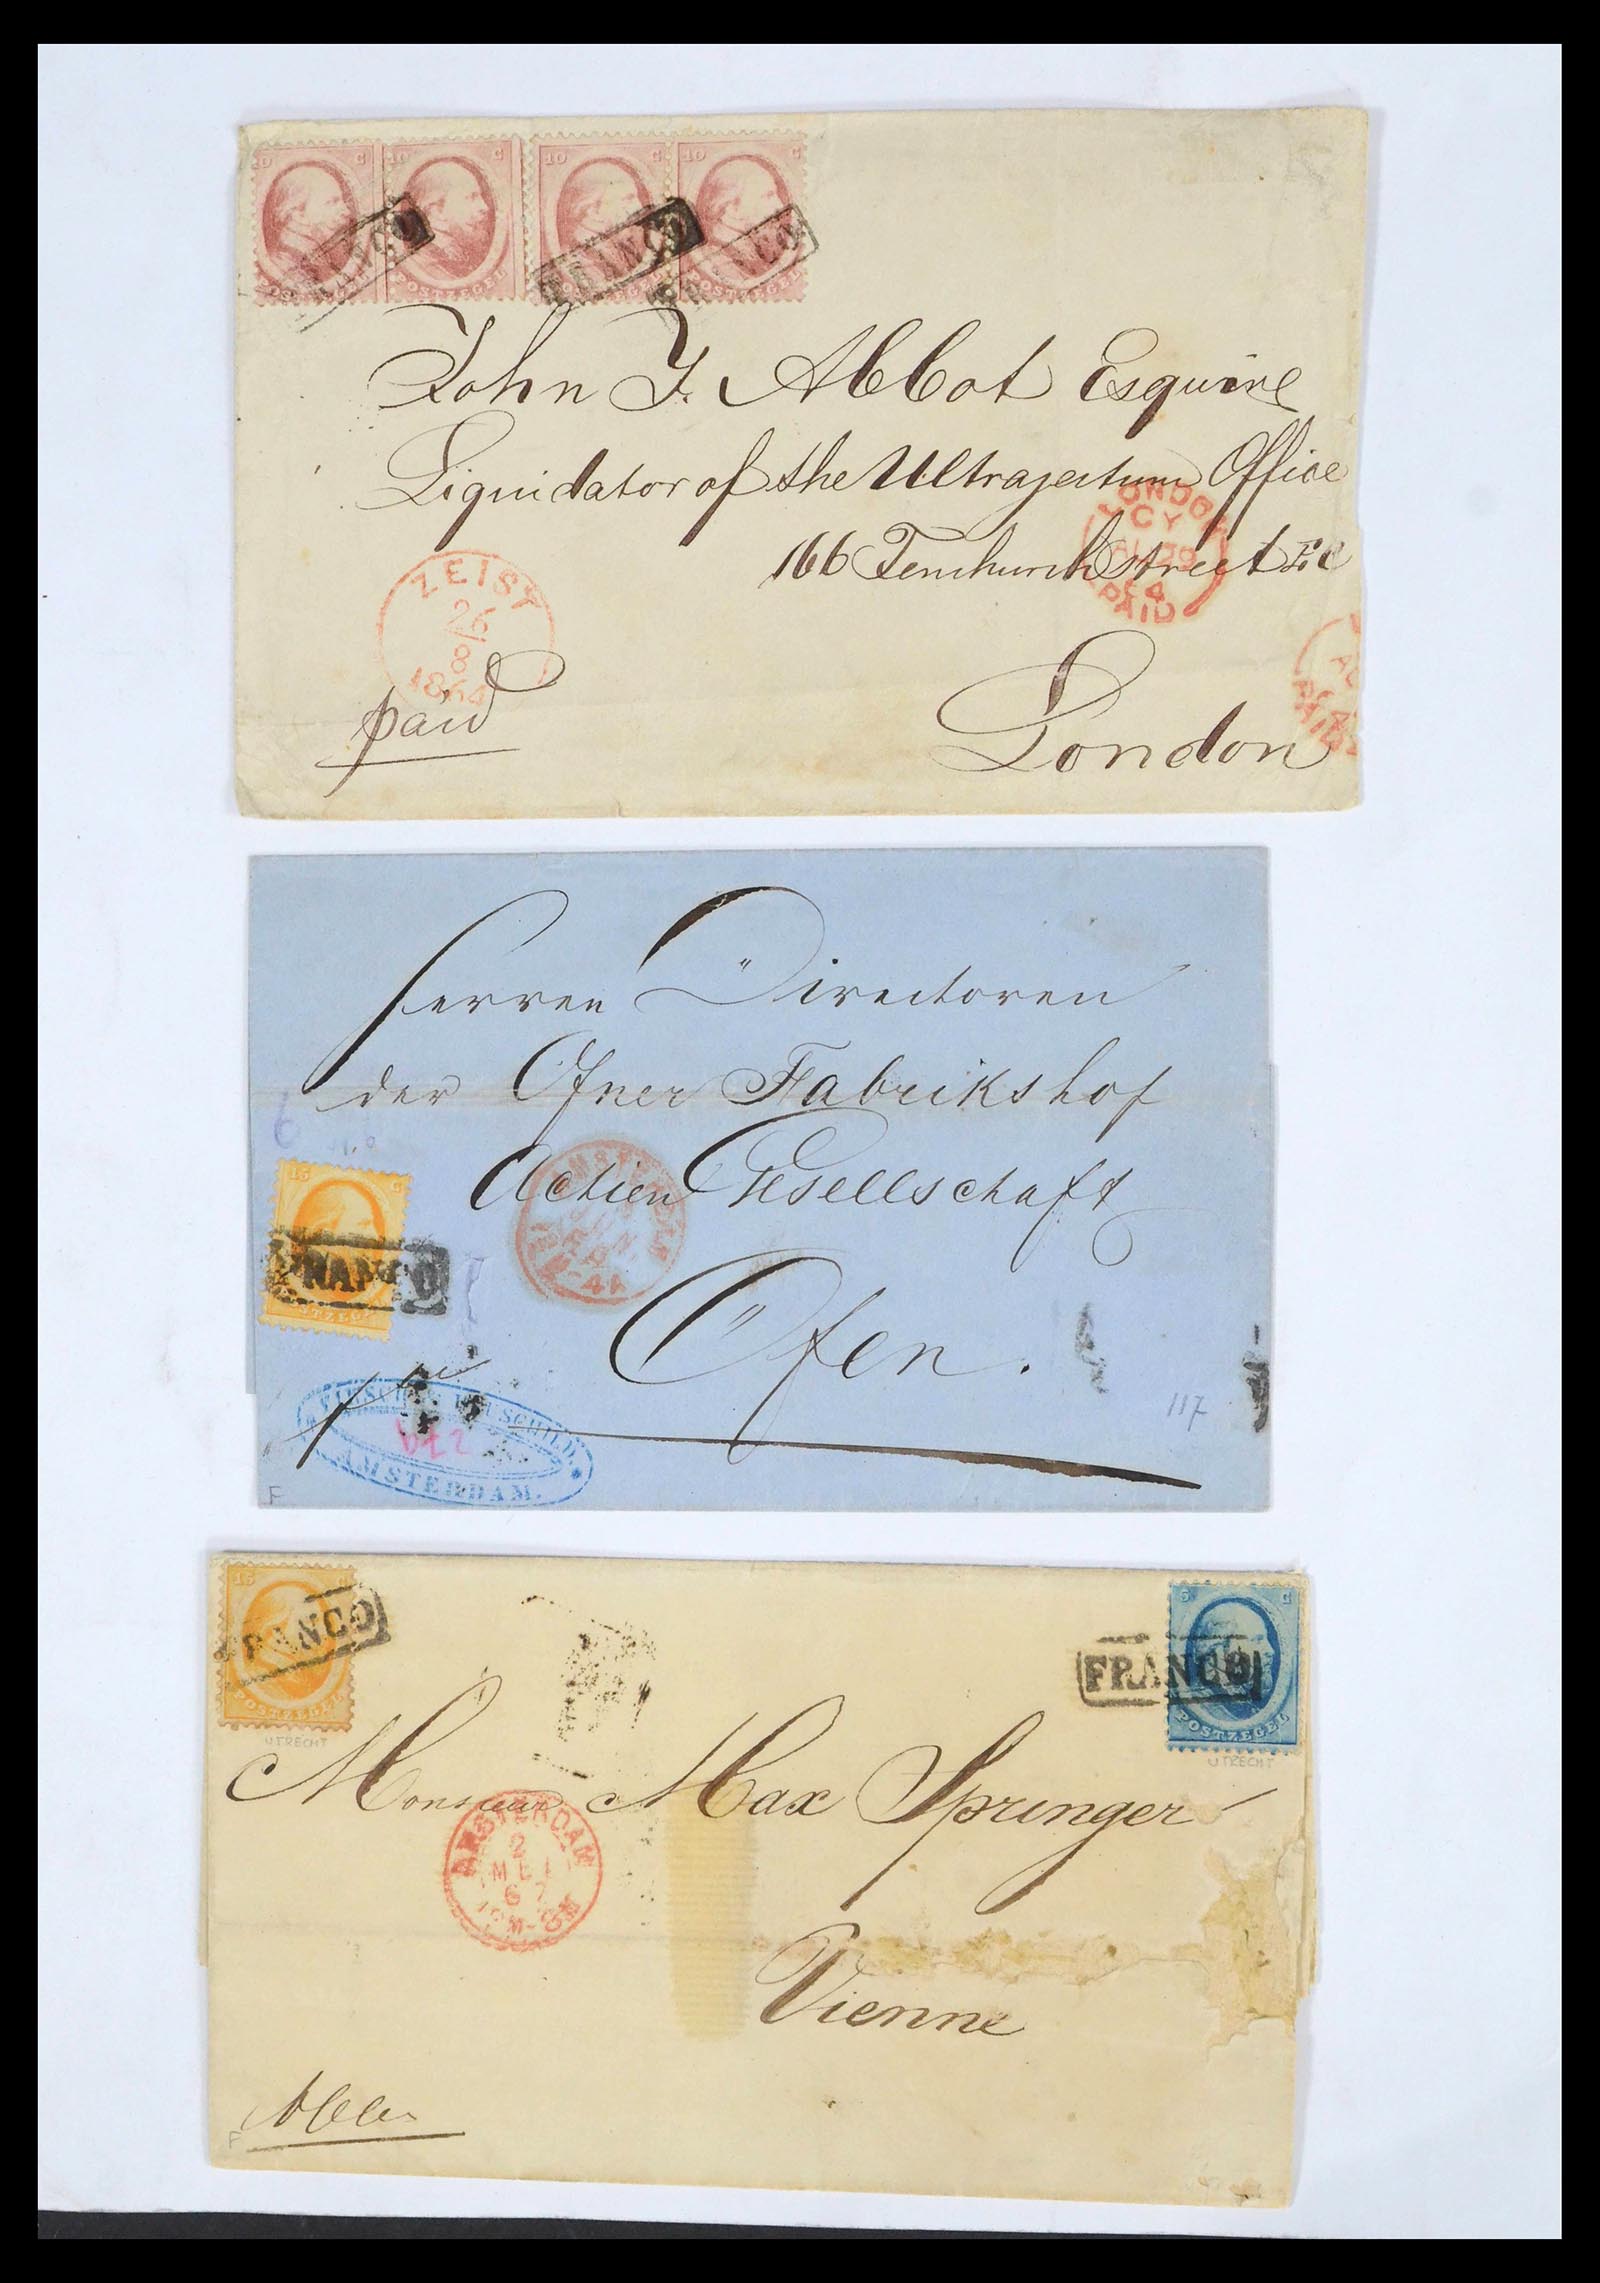 10 C 10 C 10 C 10 C
FRANCO FRANCO FRANCO
POSTZEGEL POSTZEGEL POSTZEGEL POSTZEGEL
John F. Abbot Esquire
Liquidator of the Ultrajectum Office
166 Fenchurch street E C
London
LONDON
CY
PAID
ZEIST
26
8
1864
paid
PAID
Herren Directoren
der Ofner Fabrikshof
Actien Gesellschaft
Öfen.
15 C
FRANCO
AMSTERDAM
AMSTERDAM.
117
F
15 C
FRANCO
POSTZEGEL
UTRECHT
5 C
FRANCO
POSTZEGEL
UTRECHT
Monsieur Max Springer
Vienne
AMSTERDAM
2
MEI
67
F